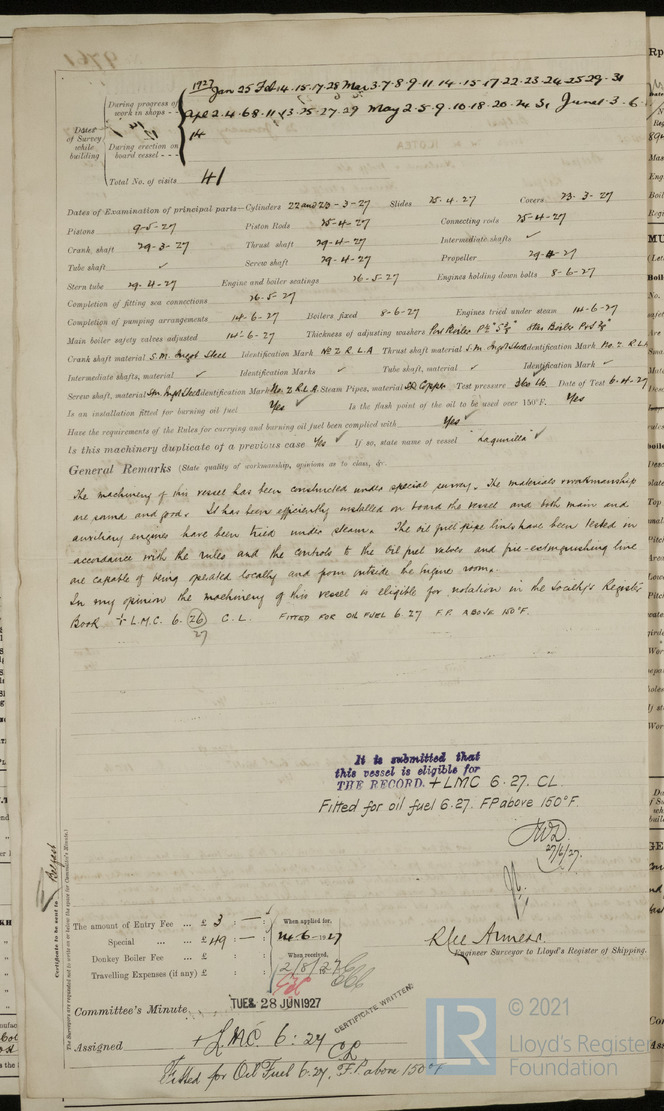 1927 Jan 25 Feb 14 · 15 · 17 · 28 Mar 3 · 7 · 8 · 9 · 11 · 14 · 15 · 17 · 22 · 23 · 24 · 25 29 · 31
During progress of work in shops - -
Apl 2 · 4 · 6 8 · 11 · 13 · 25 · 27 · 29 May 2 · 5 · 9 · 10 · 18 · 20 · 24 31 June 1 · 3 · 6 ·
14
Dates of Survey while building
During erection on board vessel - - -
Total No. of visits 41
Dates of Examination of principal parts—Cylinders 22 and 23 - 3 - 27 Slides 25 . 4 . 27 Covers 23 . 3 - 27
Pistons 9-5-27 Piston Rods 25-4-27 Connecting rods 25-4-27
Crank shaft 29-3-27 Thrust shaft 29-4-27 Intermediate shafts ✓
Tube shaft ✓ Screw shaft 29-4-27 Propeller 29-4-27
Stern tube 29.4-27 Engine and boiler seatings 26-5-27 Engines holding down bolts 8-6-27
Completion of fitting sea connections 26.5-27
Completion of pumping arrangements 14-6-27 Boilers fixed 8-6-27 Engines tried under steam 14-6-27
Main boiler safety valves adjusted 14-6-27 Thickness of adjusting washers Port Boiler Star Boiler
Crank shaft material S.M. Ingot Steel Identification Mark No 2 R.L.A Thrust shaft material S.M. Ingot Steel Identification Mark No. 2 R.L.A
Intermediate shafts, material ✓ Identification Marks ✓ Tube shaft, material ✓ Identification Mark ✓
Screw shaft, material S.M. Ingot Steel Identification Mark No. 2 R.L.A. Steam Pipes, material S.D. Copper Test pressure 360 lb Date of Test 6-4-27
Is an installation fitted for burning oil fuel Yes ✓ Is the flash point of the oil to be used over 150°F. Yes
Have the requirements of the Rules for carrying and burning oil fuel been complied with Yes ✓
Is this machinery duplicate of a previous case Yes ✓ If so, state name of vessel "Lagunilla" ✓
General Remarks (State quality of workmanship, opinions as to class, &c.
The machinery of this vessel has been constructed under special survey. The materials & workmanship
are sound and good. It has been efficiently installed on board the vessel and both main and
auxiliary engines have been tried under steam. The oil fuel pipe lines have been tested in
accordance with the rules and the controls to the oil fuel valves and fire-extinguishing line
are capable of being operated locally and from outside the engine room.
In my opinion the machinery of this vessel is eligible for notation in the Society's Register
Book + L.M.C. 6. 26 C.L. FITTED FOR OIL FUEL 6.27 F.P. ABOVE 150°F.
27
It is submitted that
this vessel is eligible for
THE RECORD. + LMC 6.27. CL.
Fitted for oil fuel 6.27. FP above 150°F.
27/6/27.
Certificate to be sent to Belfast
The amount of Entry Fee ... £ 3 : — : When applied for.
Special ... ... £ 49 : — : 24-6-1927
Donkey Boiler Fee ... £ : : When received.
Travelling Expenses (if any) £ : : 2/8/27
Engineer Surveyor to Lloyd's Register of Shipping.
Committee's Minute TUES. 28 JUN 1927
CERTIFICATE WRITTEN
Assigned + L.M.C. 6 : 27
CL
Fitted for Oil Fuel 6.27. F.P. above 150°F
LR
© 2021
Lloyd's Register
Foundation